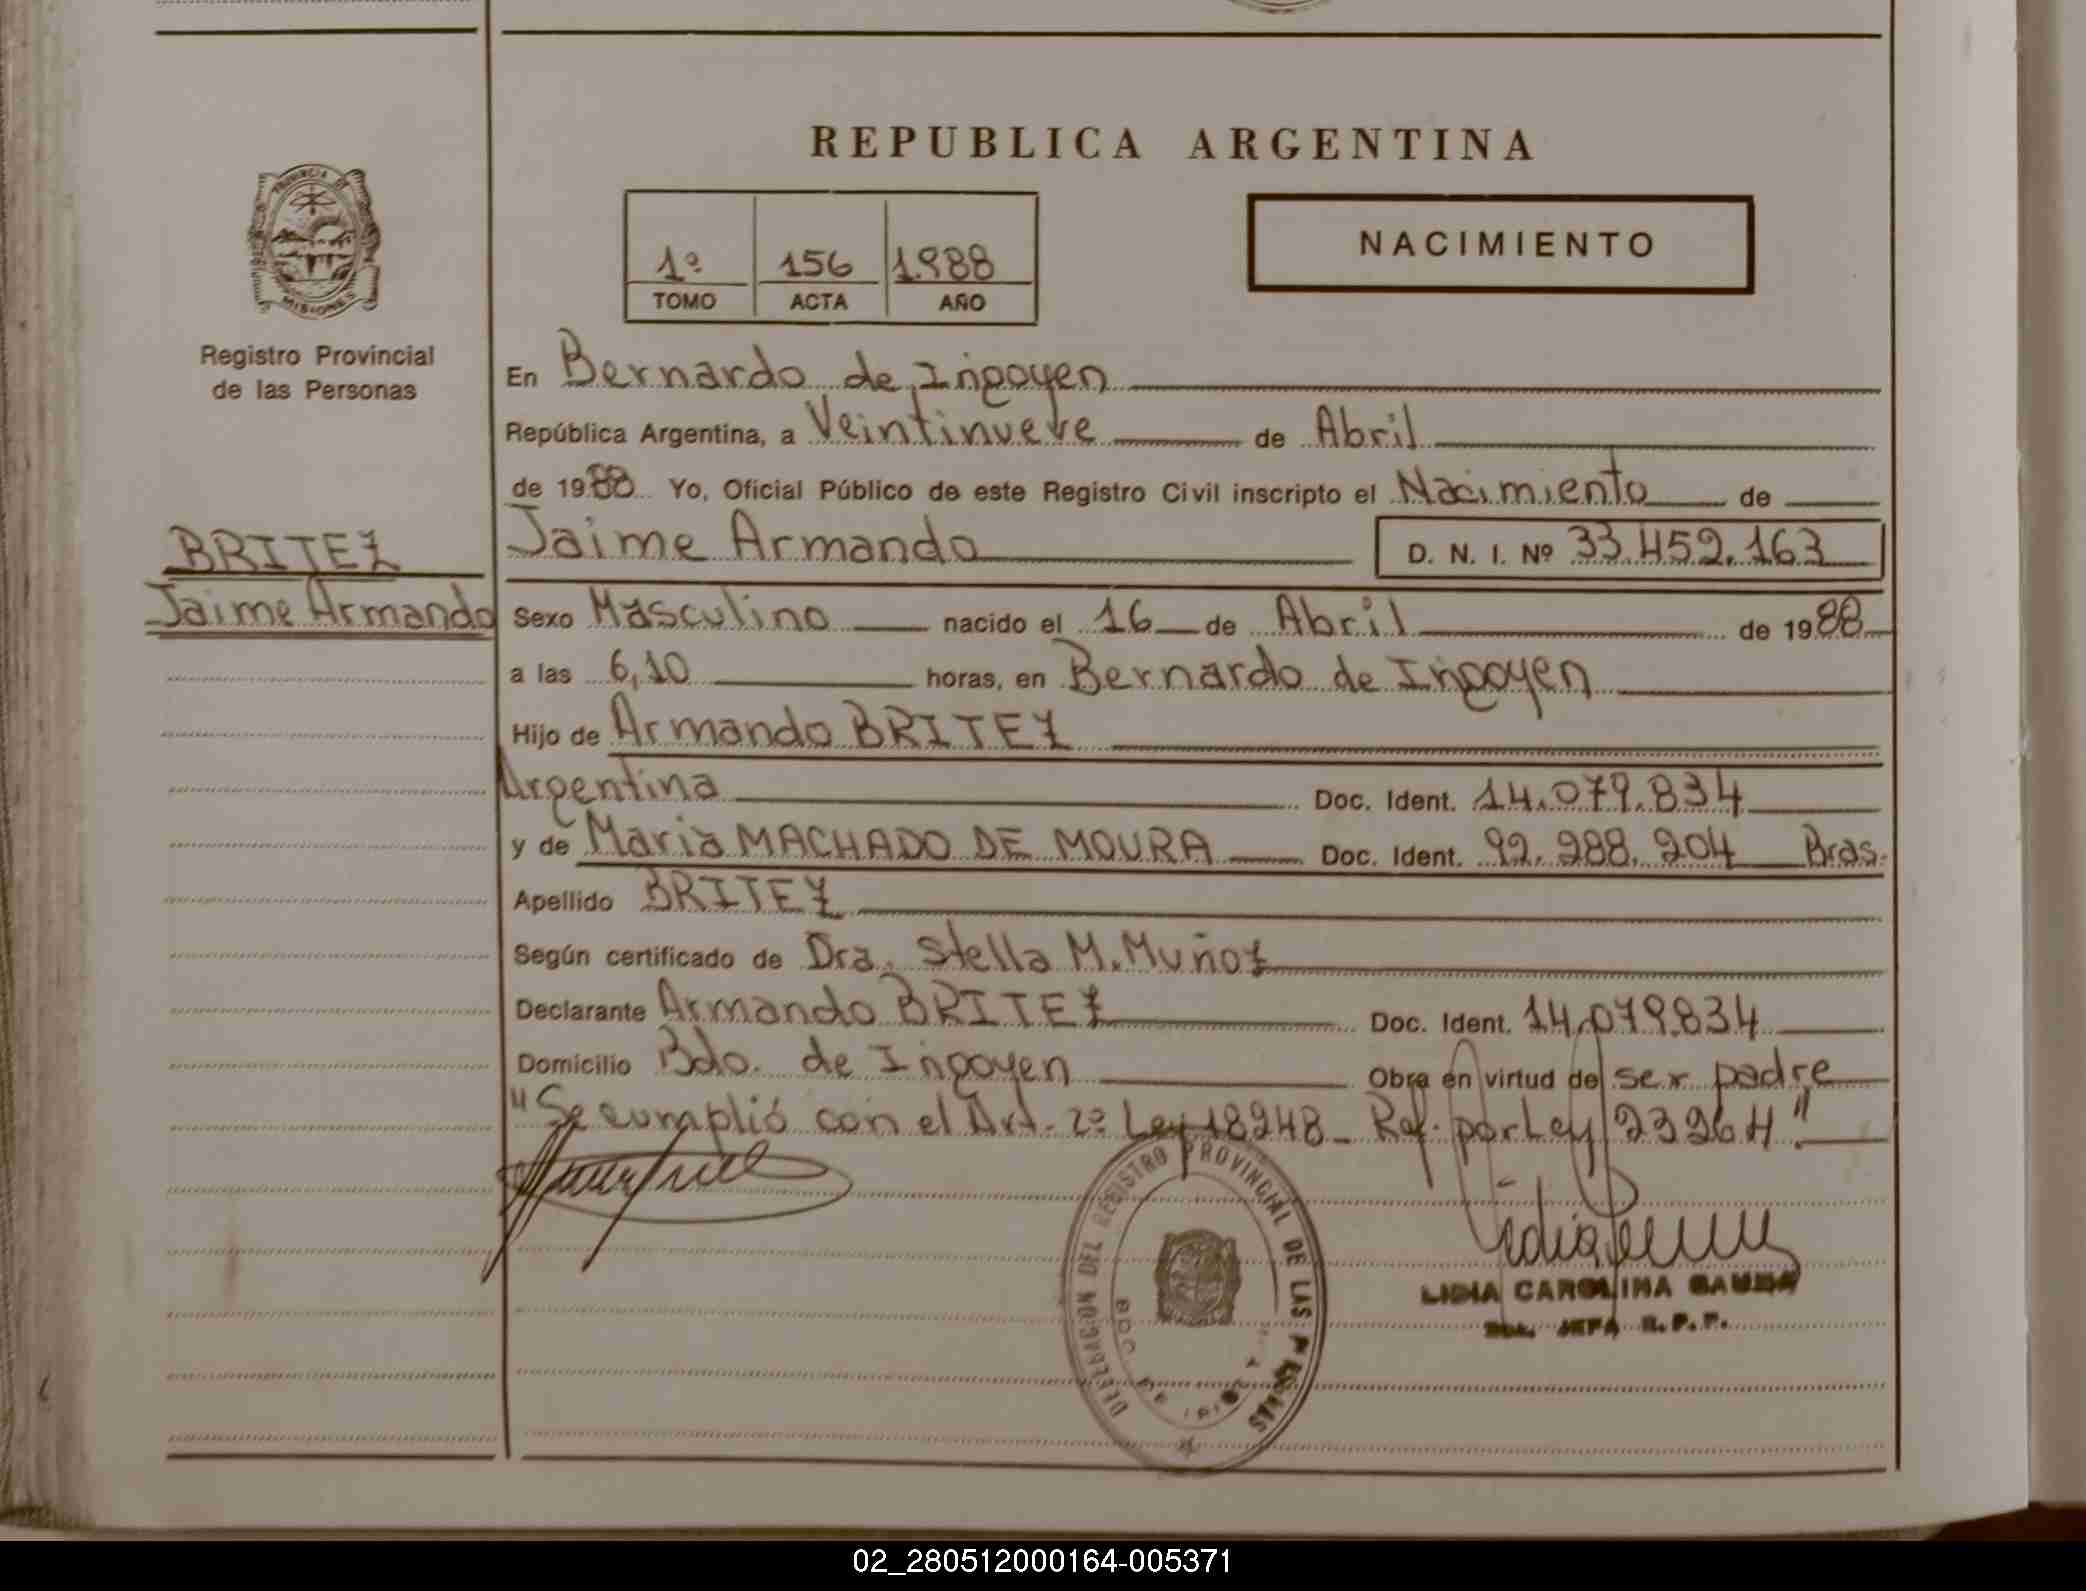 REPUBLICA ARGENTINA
PROVINCIA DE MISIONES
Registro Provincial
de las Personas
1º 156 1988
TOMO ACTA AÑO
NACIMIENTO
En Bernardo de Irigoyen
República Argentina, a Veintinueve de Abril
de 1988 Yo, Oficial Público de este Registro Civil inscripto el Nacimiento de
Jaime Armando D. N. I. Nº 33.452.163
BRITEZ
Jaime Armando
Sexo Masculino nacido el 16 de Abril de 1988
a las 6,10 horas, en Bernardo de Irigoyen
Hijo de Armando BRITEZ
Argentina Doc. Ident. 14.079.834
y de Maria MACHADO DE MOURA Doc. Ident. 92.288.204 Bras.
Apellido BRITEZ
Según certificado de Dra. Stella M. Muñoz
Declarante Armando BRITEZ Doc. Ident. 14.079.834
Domicilio Bdo. de Irigoyen Obra en virtud de ser padre
"Se cumplió con el Art. 2º Ley 18248- Ref. por Ley 23264".
DELEGACION DEL REGISTRO PROVINCIAL DE LAS PERSONAS
BDO DE IRIGOYEN
LIDIA CAROLINA
JEFA R. P. P.
02_280512000164-005371